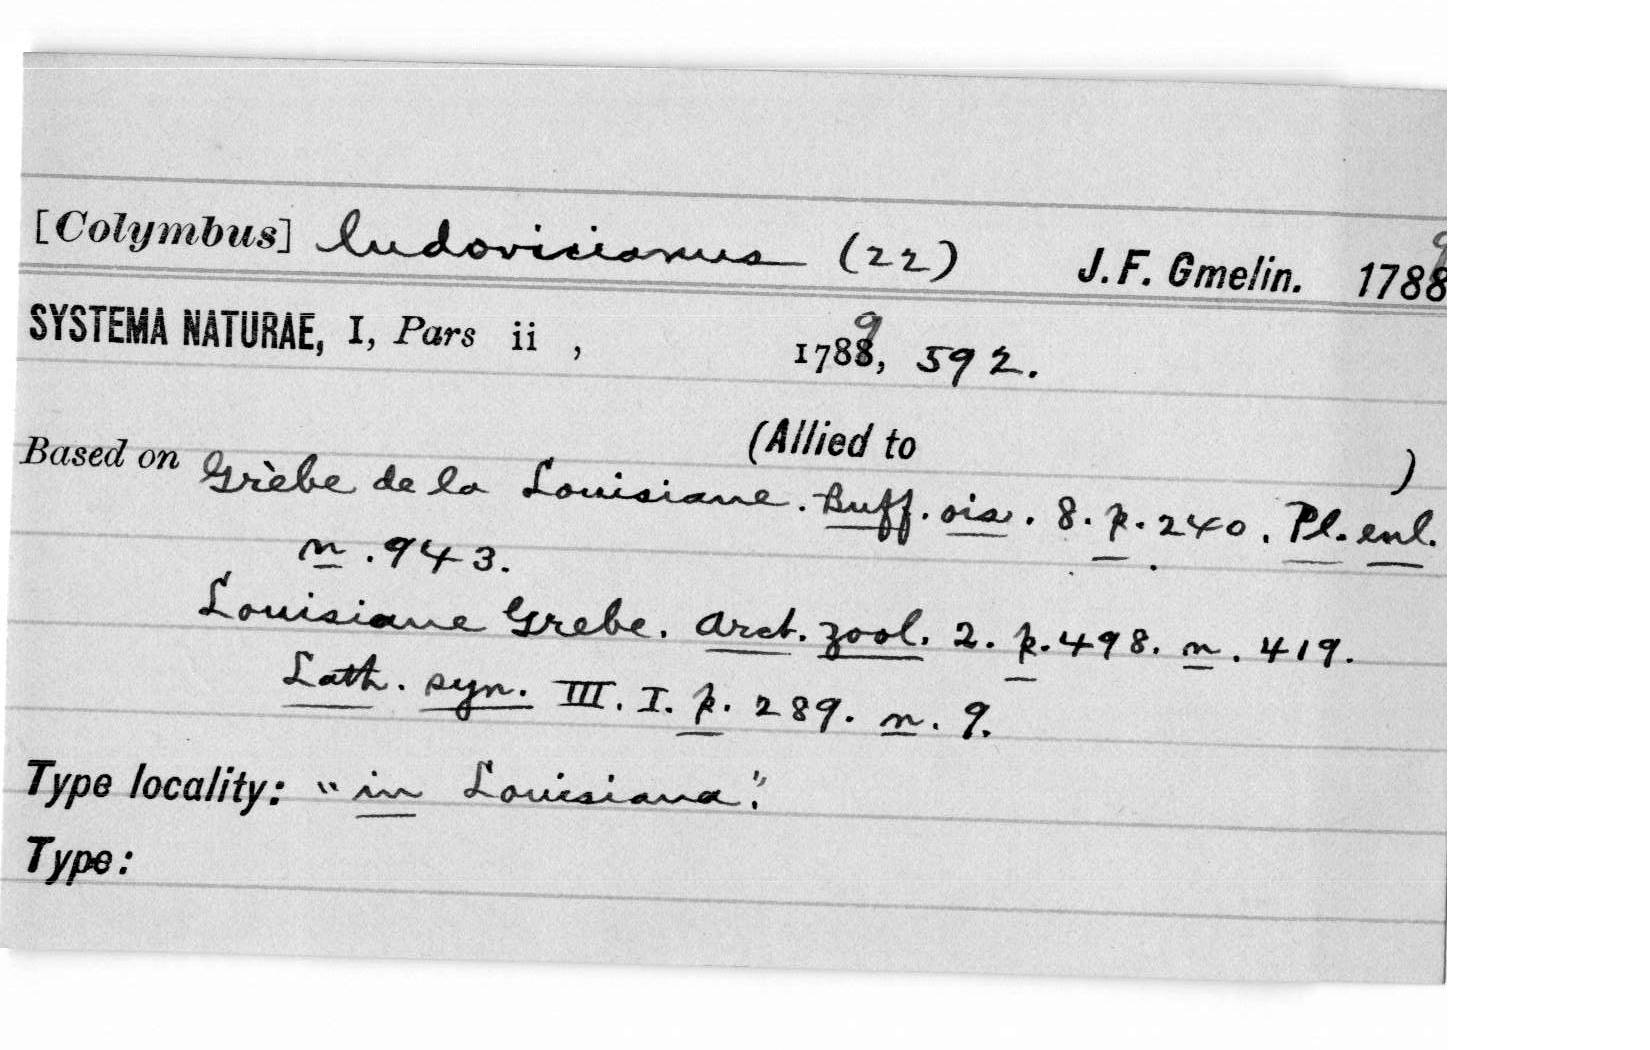 [Colymbus] ludovicianus (22) J. F. Gmelin. 17889
SYSTEMA NATURAE, I, Pars ii , 17889, 592.
(Allied to )
Based on Grèbe de la Louisiane. Buff. ois. 8. p. 240. Pl. enl.
n. 943.
Louisiane Grebe. Arct. zool. 2. p. 498. n. 419.
Lath. syn. III. I. p. 289. n. 9.
Type locality: "in Louisiana".
Type: